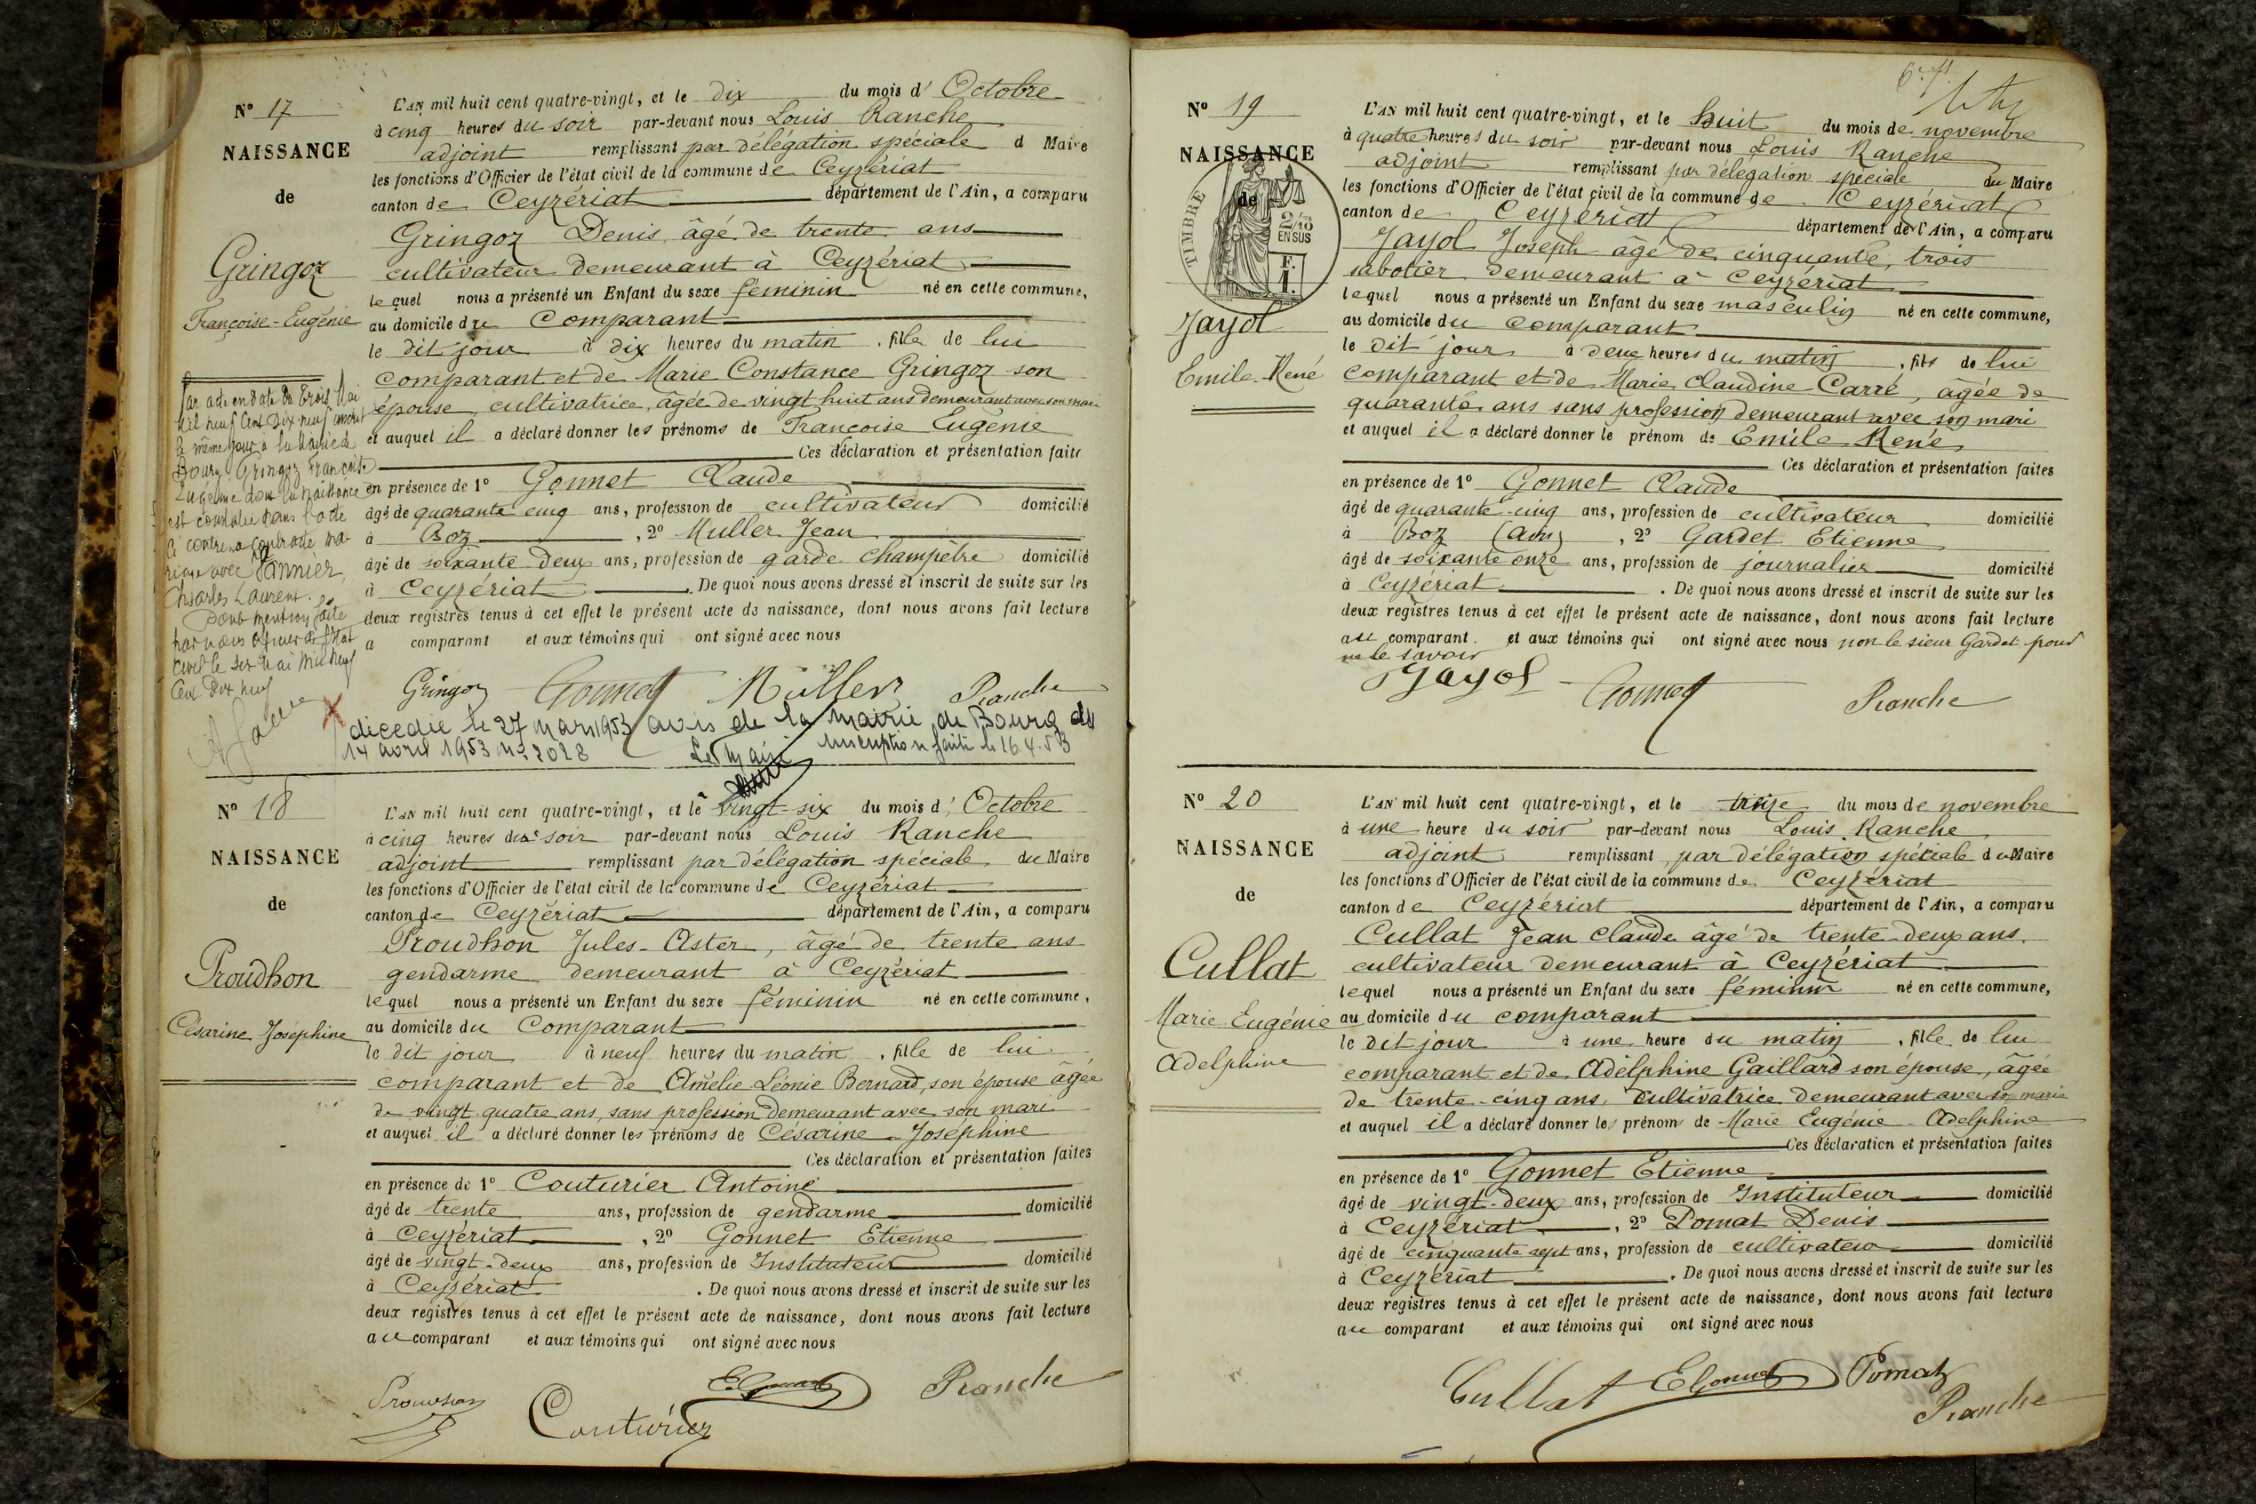 N° 17
NAISSANCE
de
Gringoz
Françoise-Eugénie
Par acte en date du trois Mai
Mil neuf Cent Dix neuf inscrit
le même jour à la Mairie de
Bourg Gringoz Françoise
Eugénie dont la naissance
est constatée dans l'acte
ci contre a contracté ma-
riage avec
Charles Laurent.
Dont mention faite
par nous officier de l'Etat
Civil le six Mai Mil neuf
Cent Dix neuf
L'AN mil huit cent quatre-vingt, et le dix du mois d' Octobre
à cinq heures du soir par-devant nous Louis Ranche
adjoint remplissant par délégation spéciale d Maire
les fonctions d'Officier de l'état civil de la commune de Ceyzériat
canton de Ceyzériat département de l'Ain, a comparu
Gringoz Denis, âgé de trente ans
cultivateur demeurant à Ceyzériat
lequel nous a présenté un Enfant du sexe féminin né en cette commune,
au domicile du Comparant
le dit jour à dix heures du matin, fille de lui
comparant et de Marie Constance Gringoz son
épouse, cultivatrice, âgée de vingt huit ans demeurant avec son mari
et auquel il a déclaré donner les prénoms de Françoise Eugénie
Ces déclaration et présentation faites
en présence de 1° Gonnet Claude
âgé de quarante cinq ans, profession de cultivateur domicilié
à Boz, 2° Muller Jean
âgé de soixante deux ans, profession de garde-champêtre domicilié
à Ceyzériat. De quoi nous avons dressé et inscrit de suite sur les
deux registres tenus à cet effet le présent acte de naissance, dont nous avons fait lecture
a comparant et aux témoins qui ont signé avec nous
Gringoz Gonnet Müller Ranche
décédée le 27 mars 1953 avis de la mairie de Bourg du
14 avril 1953 N° 2028 Le Maire Inscription faite le 16.4.53
N° 18
NAISSANCE
de
Proudhon
Césarine Joséphine
L'AN mil huit cent quatre-vingt, et le vingt-six du mois d' Octobre
à cinq heures du soir par-devant nous Louis Ranche
adjoint remplissant par délégation spéciale du Maire
les fonctions d'Officier de l'état civil de la commune de Ceyzériat
canton de Ceyzériat département de l'Ain, a comparu
Proudhon Jules-Aster, âgé de trente ans
gendarme demeurant à Ceyzériat
lequel nous a présenté un Enfant du sexe féminin né en cette commune,
au domicile du Comparant
le dit jour à neuf heures du matin, fille de lui
comparant et de Amélie Léonie Bernard, son épouse âgée
de vingt quatre ans, sans profession demeurant avec son mari
et auquel il a déclaré donner les prénoms de Césarine Joséphine
Ces déclaration et présentation faites
en présence de 1° Couturier Antoine
âgé de trente ans, profession de gendarme domicilié
à Ceyzériat, 2° Gonnet Etienne
âgé de vingt-deux ans, profession de Instituteur domicilié
à Ceyzériat. De quoi nous avons dressé et inscrit de suite sur les
deux registres tenus à cet effet le présent acte de naissance, dont nous avons fait lecture
au comparant et aux témoins qui ont signé avec nous
Proudhon Couturier E. Gonnet Ranche
N° 19
NAISSANCE
de
TIMBRE
2/10
EN SUS
F.
1.
Jayol
Emile-René
L'AN mil huit cent quatre-vingt, et le huit du mois de novembre
à quatre heures du soir par-devant nous Louis Ranche
adjoint remplissant par délégation spéciale du Maire
les fonctions d'Officier de l'état civil de la commune de Ceyzériat
canton de Ceyzériat département de l'Ain, a comparu
Jayol Joseph âgé de cinquante, trois
sabotier demeurant à Ceyzériat
lequel nous a présenté un Enfant du sexe masculin né en cette commune,
au domicile du comparant
le dit jour à deux heures du matin, fils de lui
comparant et de Marie Claudine Carré, âgée de
quarante ans sans profession demeurant avec son mari
et auquel il a déclaré donner le prénom de Emile René
Ces déclaration et présentation faites
en présence de 1° Gonnet Claude
âgé de quarante-cinq ans, profession de cultivateur domicilié
à Boz (Ain), 2° Gardet Etienne
âgé de soixante onze ans, profession de journalier domicilié
à Ceyzériat. De quoi nous avons dressé et inscrit de suite sur les
deux registres tenus à cet effet le présent acte de naissance, dont nous avons fait lecture
au comparant et aux témoins qui ont signé avec nous non le sieur Gardet pour
ne le savoir
Jayol Gonnet Ranche
N° 20
NAISSANCE
de
Cullat
Marie Eugénie
Adelphine
L'AN mil huit cent quatre-vingt, et le treize du mois de novembre
à une heure du soir par-devant nous Louis Ranche
adjoint remplissant par délégation spéciale du Maire
les fonctions d'Officier de l'état civil de la commune de Ceyzériat
canton de Ceyzériat département de l'Ain, a comparu
Cullat Jean Claude âgé de trente-deux ans
cultivateur demeurant à Ceyzériat
lequel nous a présenté un Enfant du sexe féminin né en cette commune,
au domicile du comparant
le dit jour à une heure du matin, fille de lui
comparant et de Adelphine Gaillard son épouse, âgée
de trente-cinq ans, cultivatrice demeurant avec son marie
et auquel il a déclaré donner les prénoms de Marie Eugénie Adelphine
Ces déclaration et présentation faites
en présence de 1° Gonnet Etienne
âgé de vingt-deux ans, profession de Instituteur domicilié
à Ceyzériat, 2° Pomat Denis
âgé de cinquante sept ans, profession de cultivateur domicilié
à Ceyzériat. De quoi nous avons dressé et inscrit de suite sur les
deux registres tenus à cet effet le présent acte de naissance, dont nous avons fait lecture
au comparant et aux témoins qui ont signé avec nous
Cullat E Gonnet Pomat
Ranche